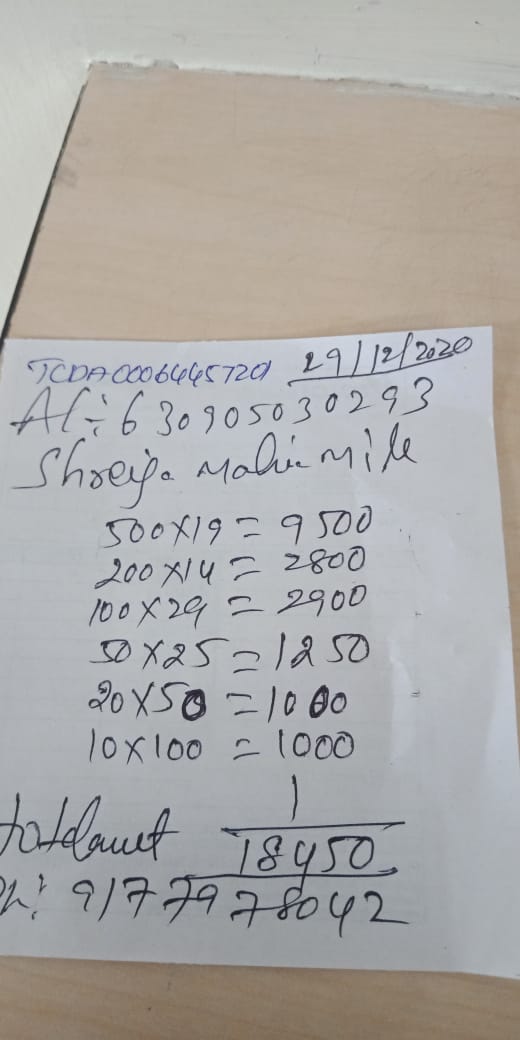 TCDA00064457201 29/12/2020
A/: 630905030293
Shreija
500x19 = 9500
200x14 = 2800
100x29 = 2900
50x25 = 1250
20x50 = 1000
10x100 = 1000
1
18450
Ph: 9177978042